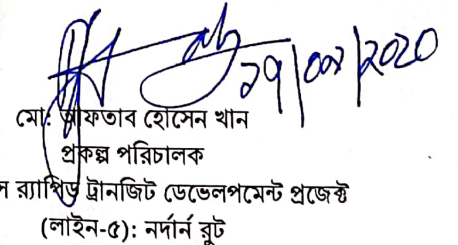 মো: আফতাব হোসেন খান
প্রকল্প পরিচালক
র‍্যাপিড ট্রানজিট ডেভেলপমেন্ট প্রজেক্ট
(লাইন-৫): নর্দার্ন রুট